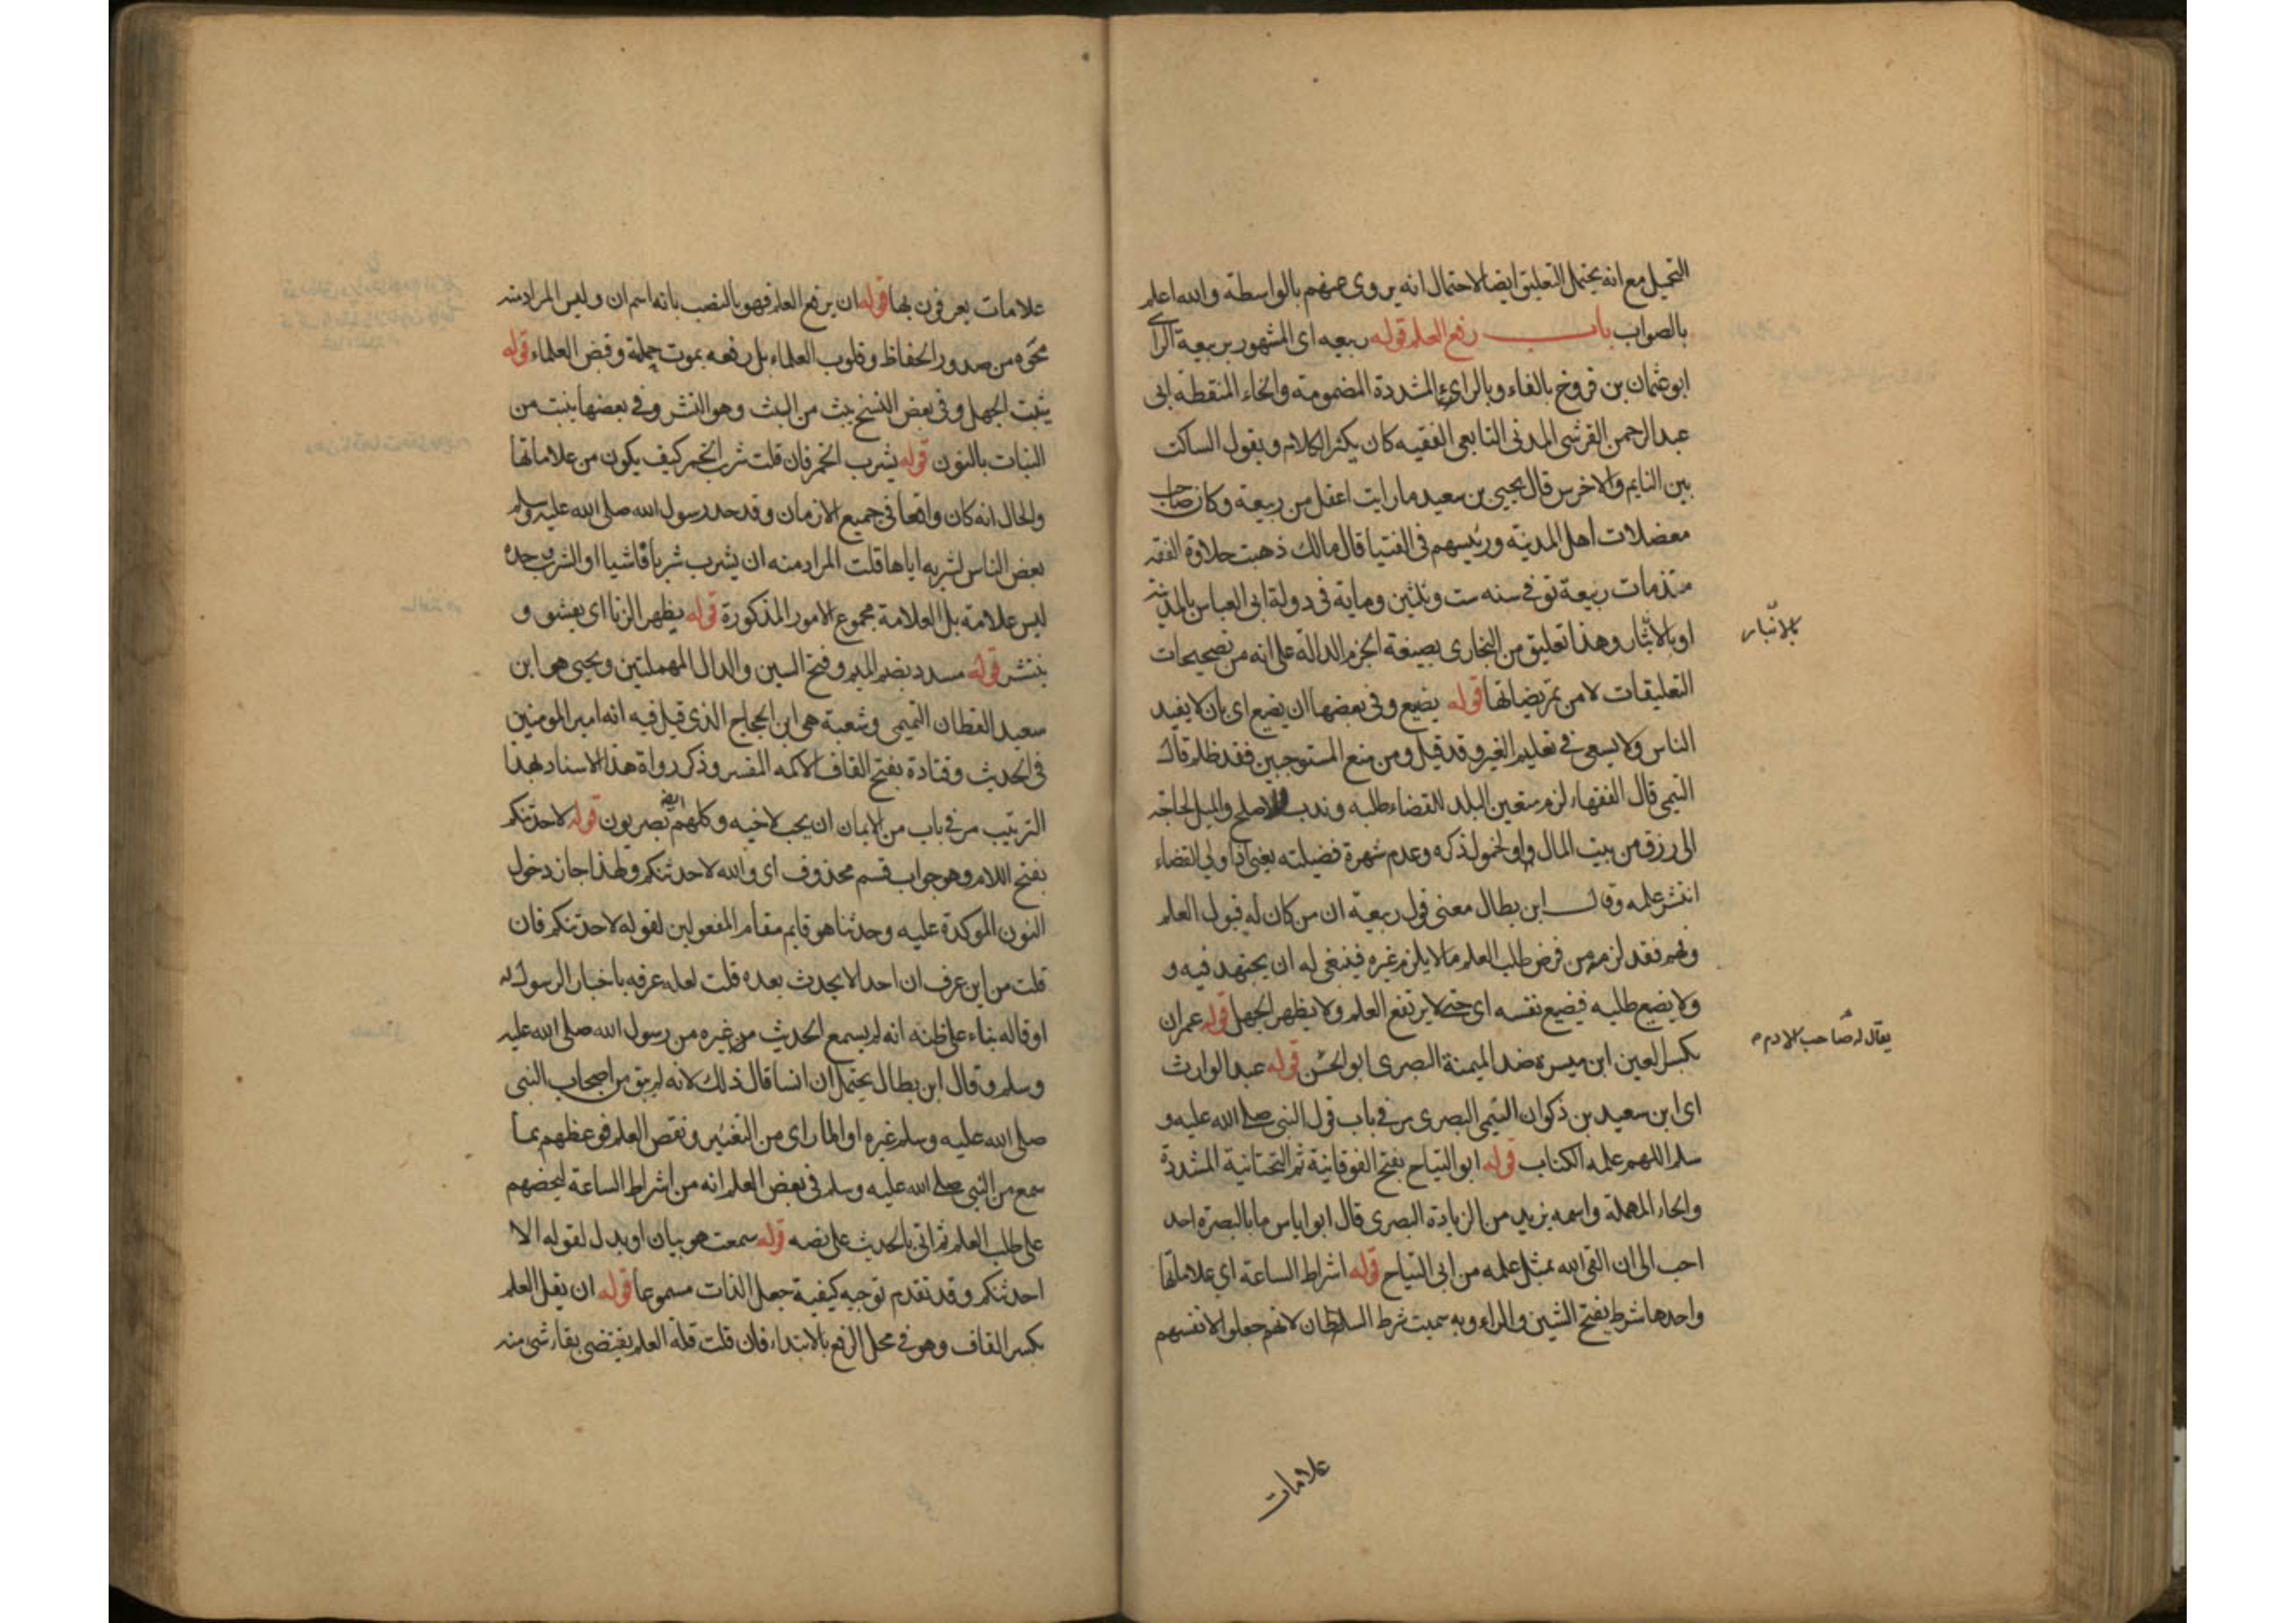 التحميل مع انه يحتمل التعليق ايضا لاحتمال انه يروى عنهم بالواسطة والله اعلم
بالصواب باب رفع العلم قوله ربيعه اى المشهور بربيعة الراى
ابو عثمان بن فروخ بالفاء وبالراء المشددة المضمومة والخاء المنقطة ابى
عبد الرحمن القرشى المدنى التابعى الفقيه كان يكثر الكلام ويقول الساكت
بين النايم والاخرس قال يحيى بن سعيد ما رايت اعقل من ربيعة وكان صاحب
معضلات اهل المدينة ورئيسهم فى الفتيا قال مالك ذهبت حلاوة الفقه
منذ مات ربيعة توفى سنه ست وثلثين وماية فى دولة ابى العباس بالمدينة
بالانبار
او بالانبار وهذا تعليق من البخارى بصيغة الجزم الدالة على انه من تصحيحات
التعليقات لا من تمريضاتها قوله يضيع وفى بعضها ان يضيع اى بان لا يفيد
الناس ولا يسعى فى تعليم الغير وقد قيل ومن منع المستوجبين فقد ظلم قال
التيمى قال الفقهاء لزم متعين البلد للقضاء طلبه وندب للاصلح والميل لحاجة
الى رزق من بيت المال او لخمول ذكره وعدم شهرة فضيلته يعنى اذا ولى القضاء
انتشر علمه وقال ابن بطال معنى قول ربيعة ان من كان له قبول العلم
وفهم فقد لزمه من فرض طلب العلم ما لا يلزم غيره فينبغى له ان يجتهد فيه و
ولا يضيع طلبه فيضيع نفسه اى حتى لا يرتفع العلم ولا يظهر الجهل قوله عمران
يقال له صاحب الادم
بكسر العين ابن ميسرة ضد الميمنة البصرى ابو الحسن قوله عبد الوارث
اى ابن سعيد بن ذكوان التيمى البصرى مر فى باب قول النبى صلى الله عليه و
سلم اللهم علمه الكتاب قوله ابو التياح بفتح الفوقانية ثم التحتانية المشددة
والحاء المهملة واسمه يزيد من الزيادة البصرى قال ابو اياس ما بالبصرة احد
احب الى ان القى الله بمثل علمه من ابى التياح قوله اشراط الساعة اى علاماتها
واحدها شرط بفتح الشين والراء وبه سميت شرط السلطان لانهم جعلوا لانفسهم
علامات
علامات يعرفون بها قوله ان يرفع العلم فهو بالنصب بانه اسم ان وليس المراد منه
محوه من صدور الحفاظ وقلوب العلماء بل رفعه بموت حملة وقبض العلماء قوله
يثبت الجهل وفى بعض النسخ يبث من البث وهو النشر وفى بعضها ينبت من
النبات بالنون قوله يشرب الخمر فان قلت شرب الخمر كيف يكون من علاماتها
والحال انه كان واقعا فى جميع الازمان وقد حد رسول الله صلى الله عليه وسلم
بعض الناس لشربه اياها قلت المراد منه ان يشرب شربا فاشيا او الشرب وحده
ليس علامة بل العلامة مجموع الامور المذكورة قوله يظهر الزنا اى يفشو و
ينتشر قوله مسدد بضم الميم وفتح السين والدال المهملتين ويحيى هو ابن
سعيد القطان التميمى وشعبة هى ابن الحجاج الذى قيل فيه انه امير المومنين
فى الحديث وقتادة بفتح القاف الاكمه المفسر وذكر رواة هذا الاسناد بهذا
الترتيب مر فى باب من الايمان ان يحب لاخيه وكلهم ايضا بصريون قوله لاحدثنكم
بفتح اللام وهو جواب قسم محذوف اى والله لاحدثنكم ولهذا جاز دخول
النون الموكدة عليه وحدثنا هو قايم مقام المفعولين لقوله لاحدثنكم فان
قلت من اين عرف ان احدا لا يحدث بعده قلت لعله عرفه باخبار الرسول له
او قاله بناء على ظنه انه لم يسمع الحديث من غيره من رسول الله صلى الله عليه
وسلم وقال ابن بطال يحتمل ان انسا قال ذلك لانه لم يبق من اصحاب النبى
صلى الله عليه وسلم غيره او لما راى من التغيير ونقص العلم فوعظهم بما
سمع من النبى صلى الله عليه وسلم فى بعض العلم انه من اشراط الساعة ليحضهم
على طلب العلم ثم اتى بالحديث على نصه قوله سمعت هو بيان او بدل لقوله الا
احدثنكم وقد تقدم توجيه كيفية جعل الذات مسموعا قوله ان يقل العلم
بكسر القاف وهو فى محل الرفع بالابتداء فان قلت قلة العلم يقتضى بقاء شى منه